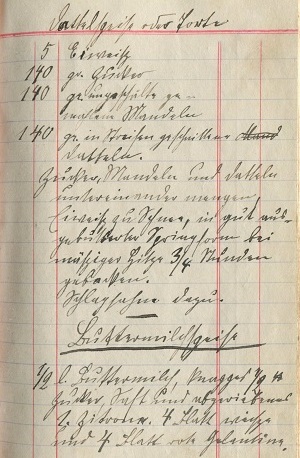 Dattelspeise oder Torte
5 Eiweiß
140 gr. Zucker
140 gr. ungeschälte ge-
mahlene Mandeln
140 gr. in Streifen geschnittene
Datteln.
Zucker, Mandeln und Datteln
untereinander mengen,
Eiweiß zu Schnee, in gut aus-
gebutterter Springform bei
mäßiger Hitze 3/4 Stunden
gebacken.
Schlagsahne dazu.
Buttermilchspeise
1/2 l. Buttermilch, knapp 1/2 tt
Zucker, Saft und abgeriebenes
2 Zitronen. 4 Blatt weiße
und 4 Blatt rote Gelantine.